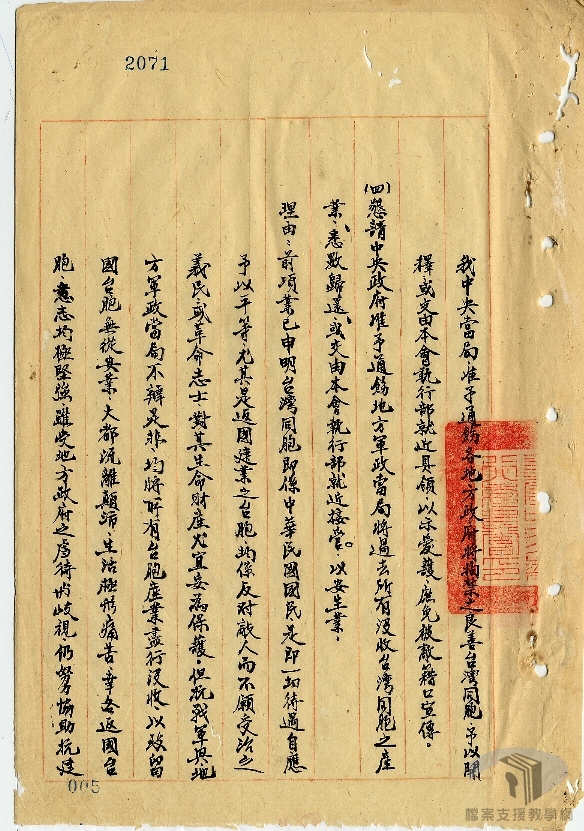 2071
我中央當局、准予通飭各地方政府將拘禁之良善台灣同胞、予以開
釋或交由本會執行部就近具領、以示愛護、庶免被敵藉口宣傳。
(四)懇請中央政府准予通飭地方軍政當局將過去所有沒收台灣同胞之產
業、悉數歸還、或交由本會執行部就近接管。以安生業、
理由:前項業已申明台灣同胞即係中華民國國民是即一切待遇自應
予以平等、尤其是返國建業之台胞均係反對敵人而不願受治之
義民、或革命志士、對其生命財產尤宜妥為保護、但抗戰軍興地
方軍政當局不辯是非、均將所有台胞產業盡行沒收、以致留
國台胞無從安業、大都流離顛沛、生活極形痛苦、幸各返國台
胞、意志均極堅強雖受地方政府之虐待歧視仍努力協助抗建
005
檔案支援教學網